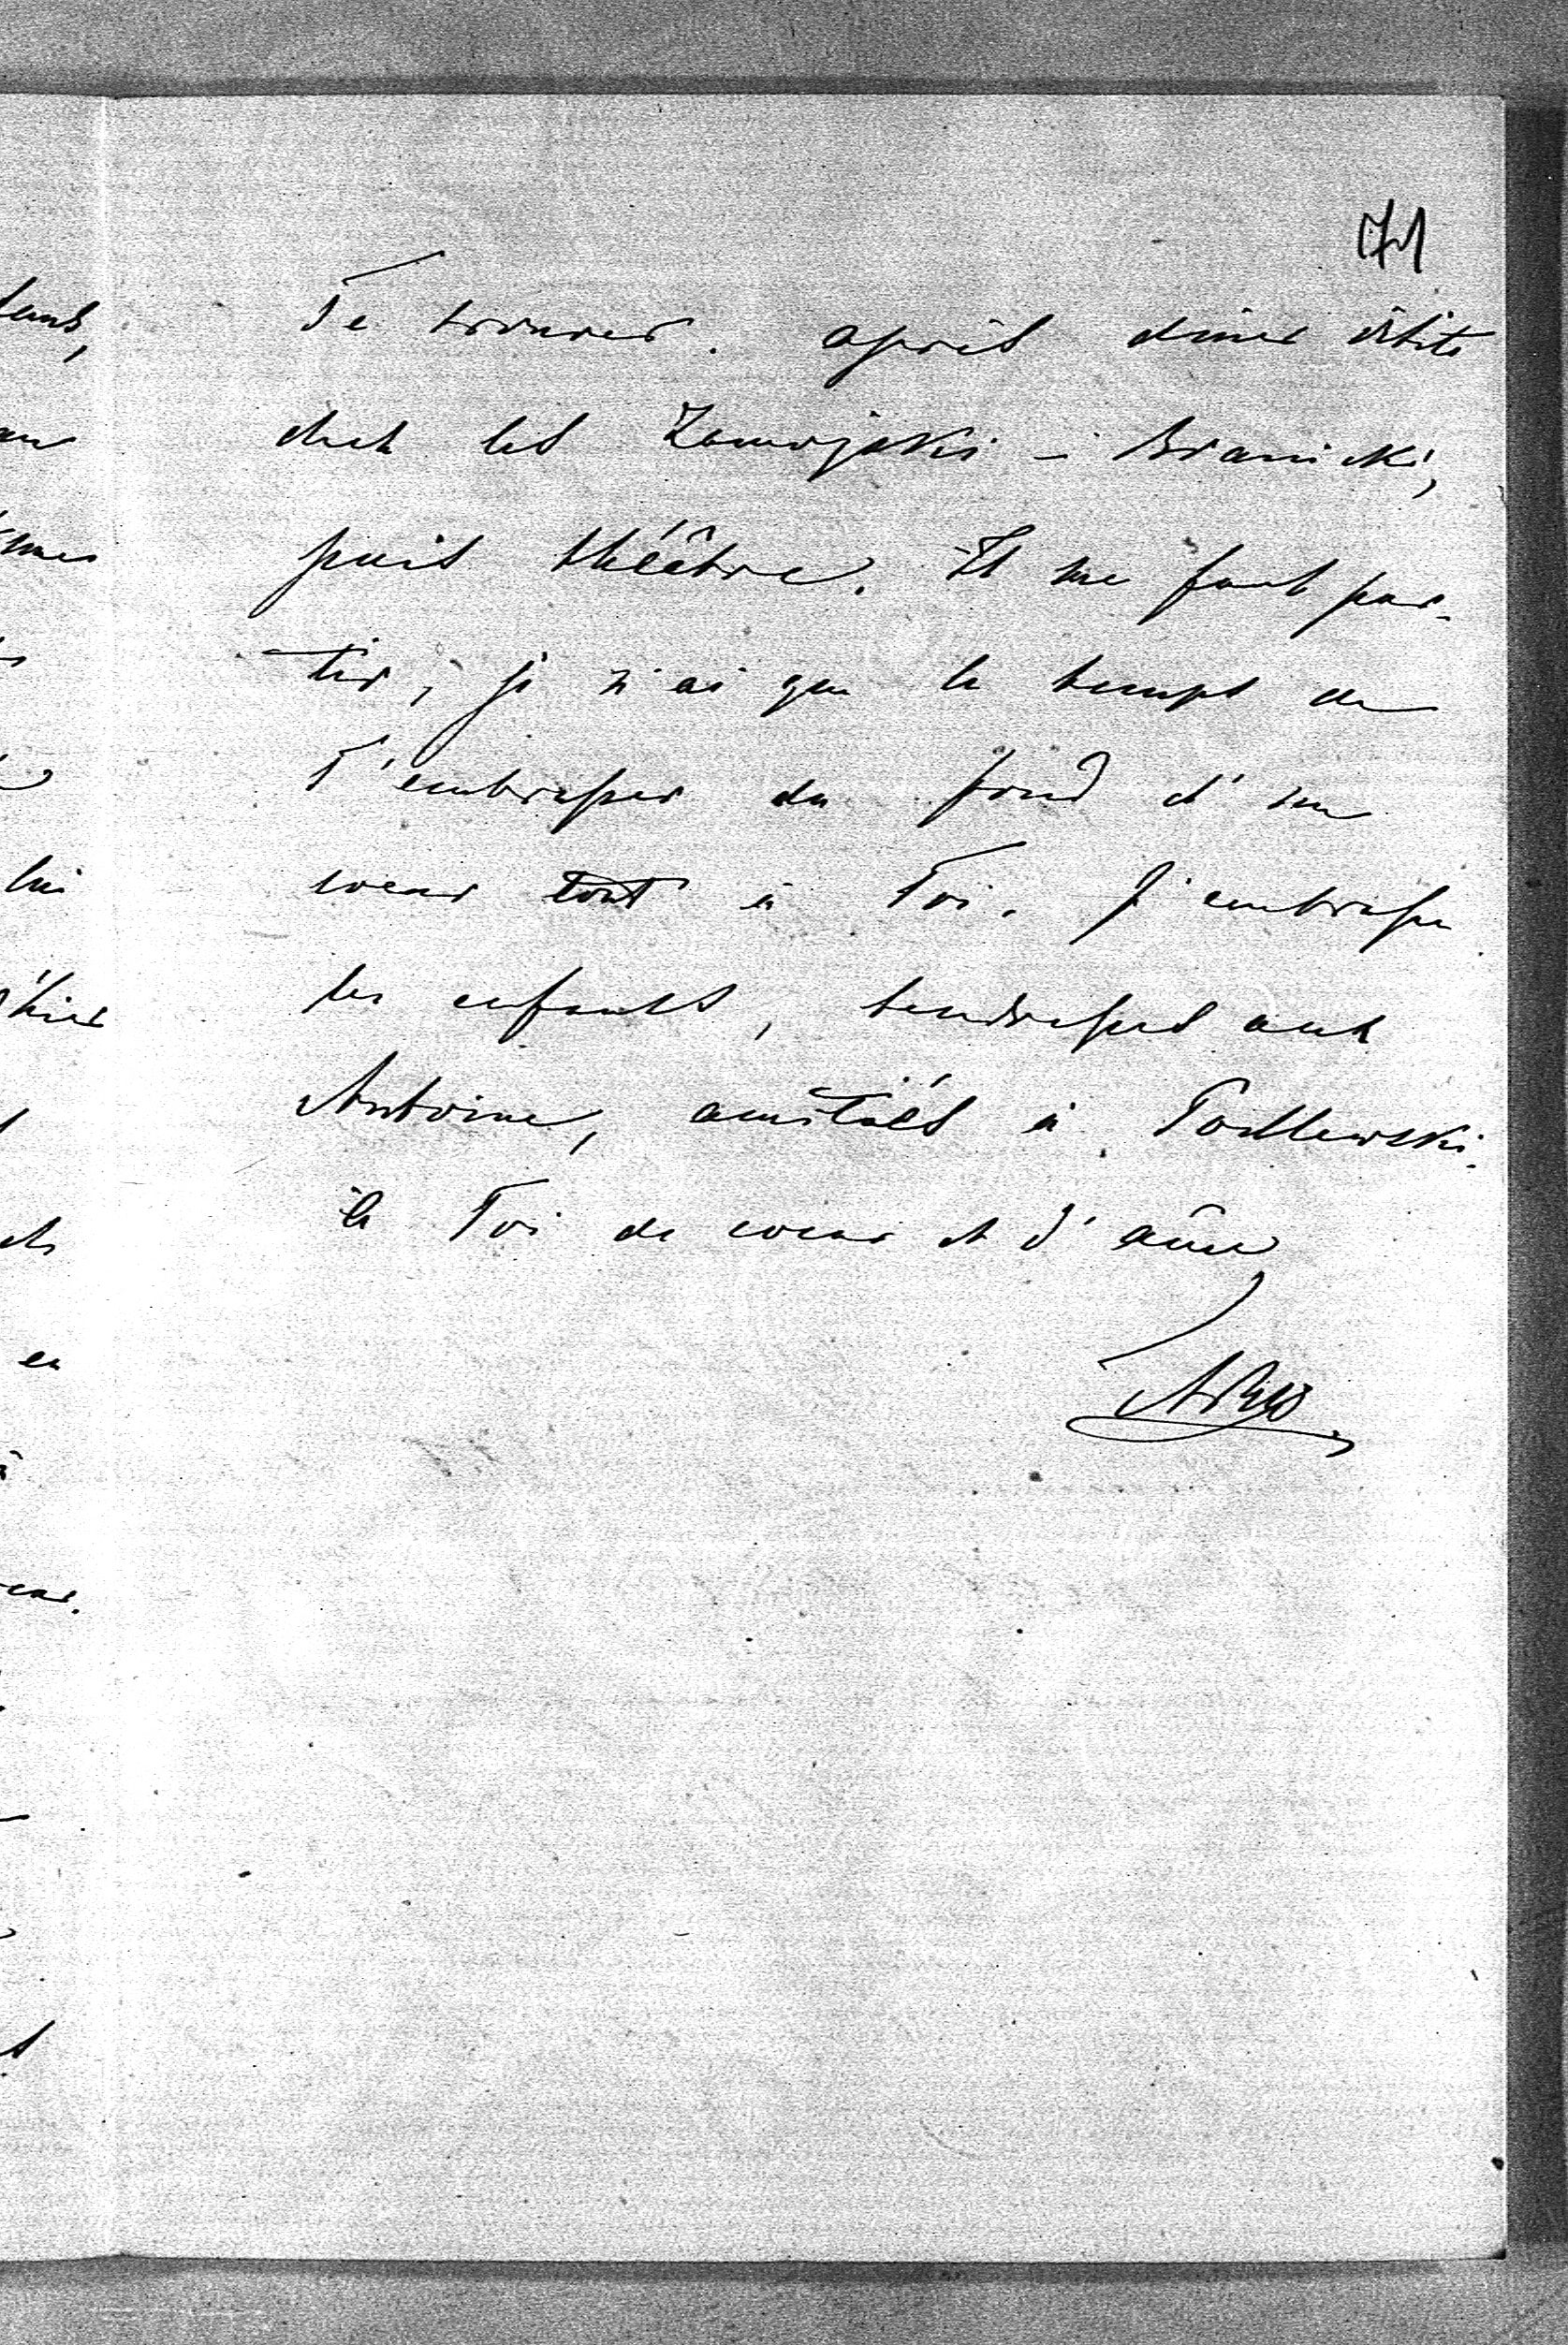 71
Te trouver. après diner visite
chez les Zamojski - Branicki,
puis théâtre. Il me faut par-
tir, je n'ai que le temps de
T'embrasser du fond d'un
coeur tout à Toi. J'embrasse
les enfants, tendresses aux
Antoine, amitiés à Podlewski.
à Toi de coeur et d'âme